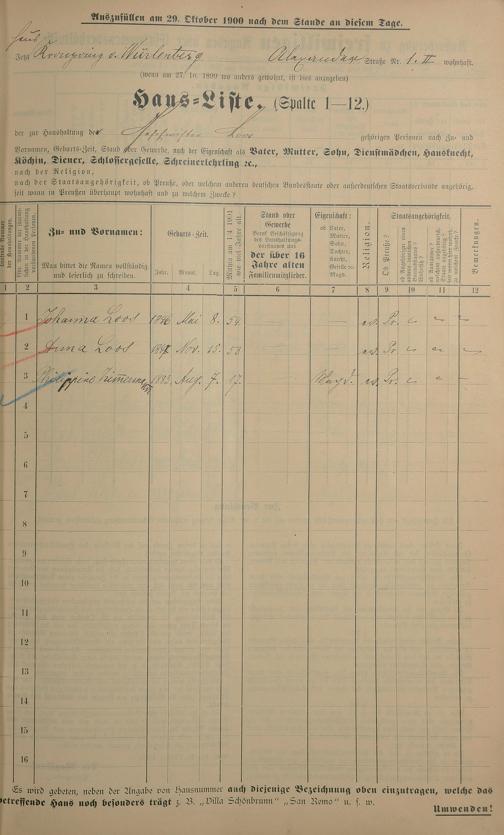 Auszufüllen am 29. Oktober 1900 nach dem Stande an diesem Tage.
Haus
Jetzt Kronprinz v. Würtenberg Straße Nr. 1. II wohnhaft.
(wenn am 27./10. 1899 wo anders gewohnt, ist dies anzugeben)
Haus-Liste. (Spalte 1—12.)
der zur Haushaltung der Geschwister Loos gehörigen Personen nach Zu- und
Vornamen, Geburts-Zeit, Stand oder Gewerbe, nach der Eigenschaft als Vater, Mutter, Sohn, Dienstmädchen, Hausknecht,
Köchin, Diener, Schlossergeselle, Schreinerlehrling ꝛc.,
nach der Religion,
nach der Staatsangehörigkeit, ob Preuße, oder welchem anderen deutschen Bundesstaate oder außerdeutschen Staatsverbande angehörig,
seit wann in Preußen überhaupt wohnhaft und zu welchem Zwecke?
Zu- und Vornamen:
Man bittet die Namen vollständig
und leserlich zu schreiben.
Geburts-Zeit.
Jahr. Monat. Tag.
Stand oder
Gewerbe
der über 16
Jahre alten
Familienmitglieder.
Eigenschaft:
ob Vater,
Mutter,
Sohn,
Tochter,
Knecht,
Geselle ꝛc.
Magd.
Religion.
Staatsangehörigkeit.
Ob Preuße?
Bemerkungen.
1 2 3 4 5 6 7 8 9 10 11 12
1 Johanna Loos 1846 Mai 8. 54. — — ev. Pr. — — —
2 Anna Loos 1847 Nov. 15. 53. — — ev. Pr. — — —
3 Philippine 1883 Aug. 7. 17. Magd. ev. Pr. — — —
4
5
6
7
8
9
10
11
12
13
14
15
16
Es wird gebeten, neben der Angabe von Hausnummer auch diejenige Bezeichnung oben einzutragen, welche das
betreffende Haus noch besonders trägt z. B. „Villa Schönbrunn" „San Remo" u. s. w.
Umwenden!